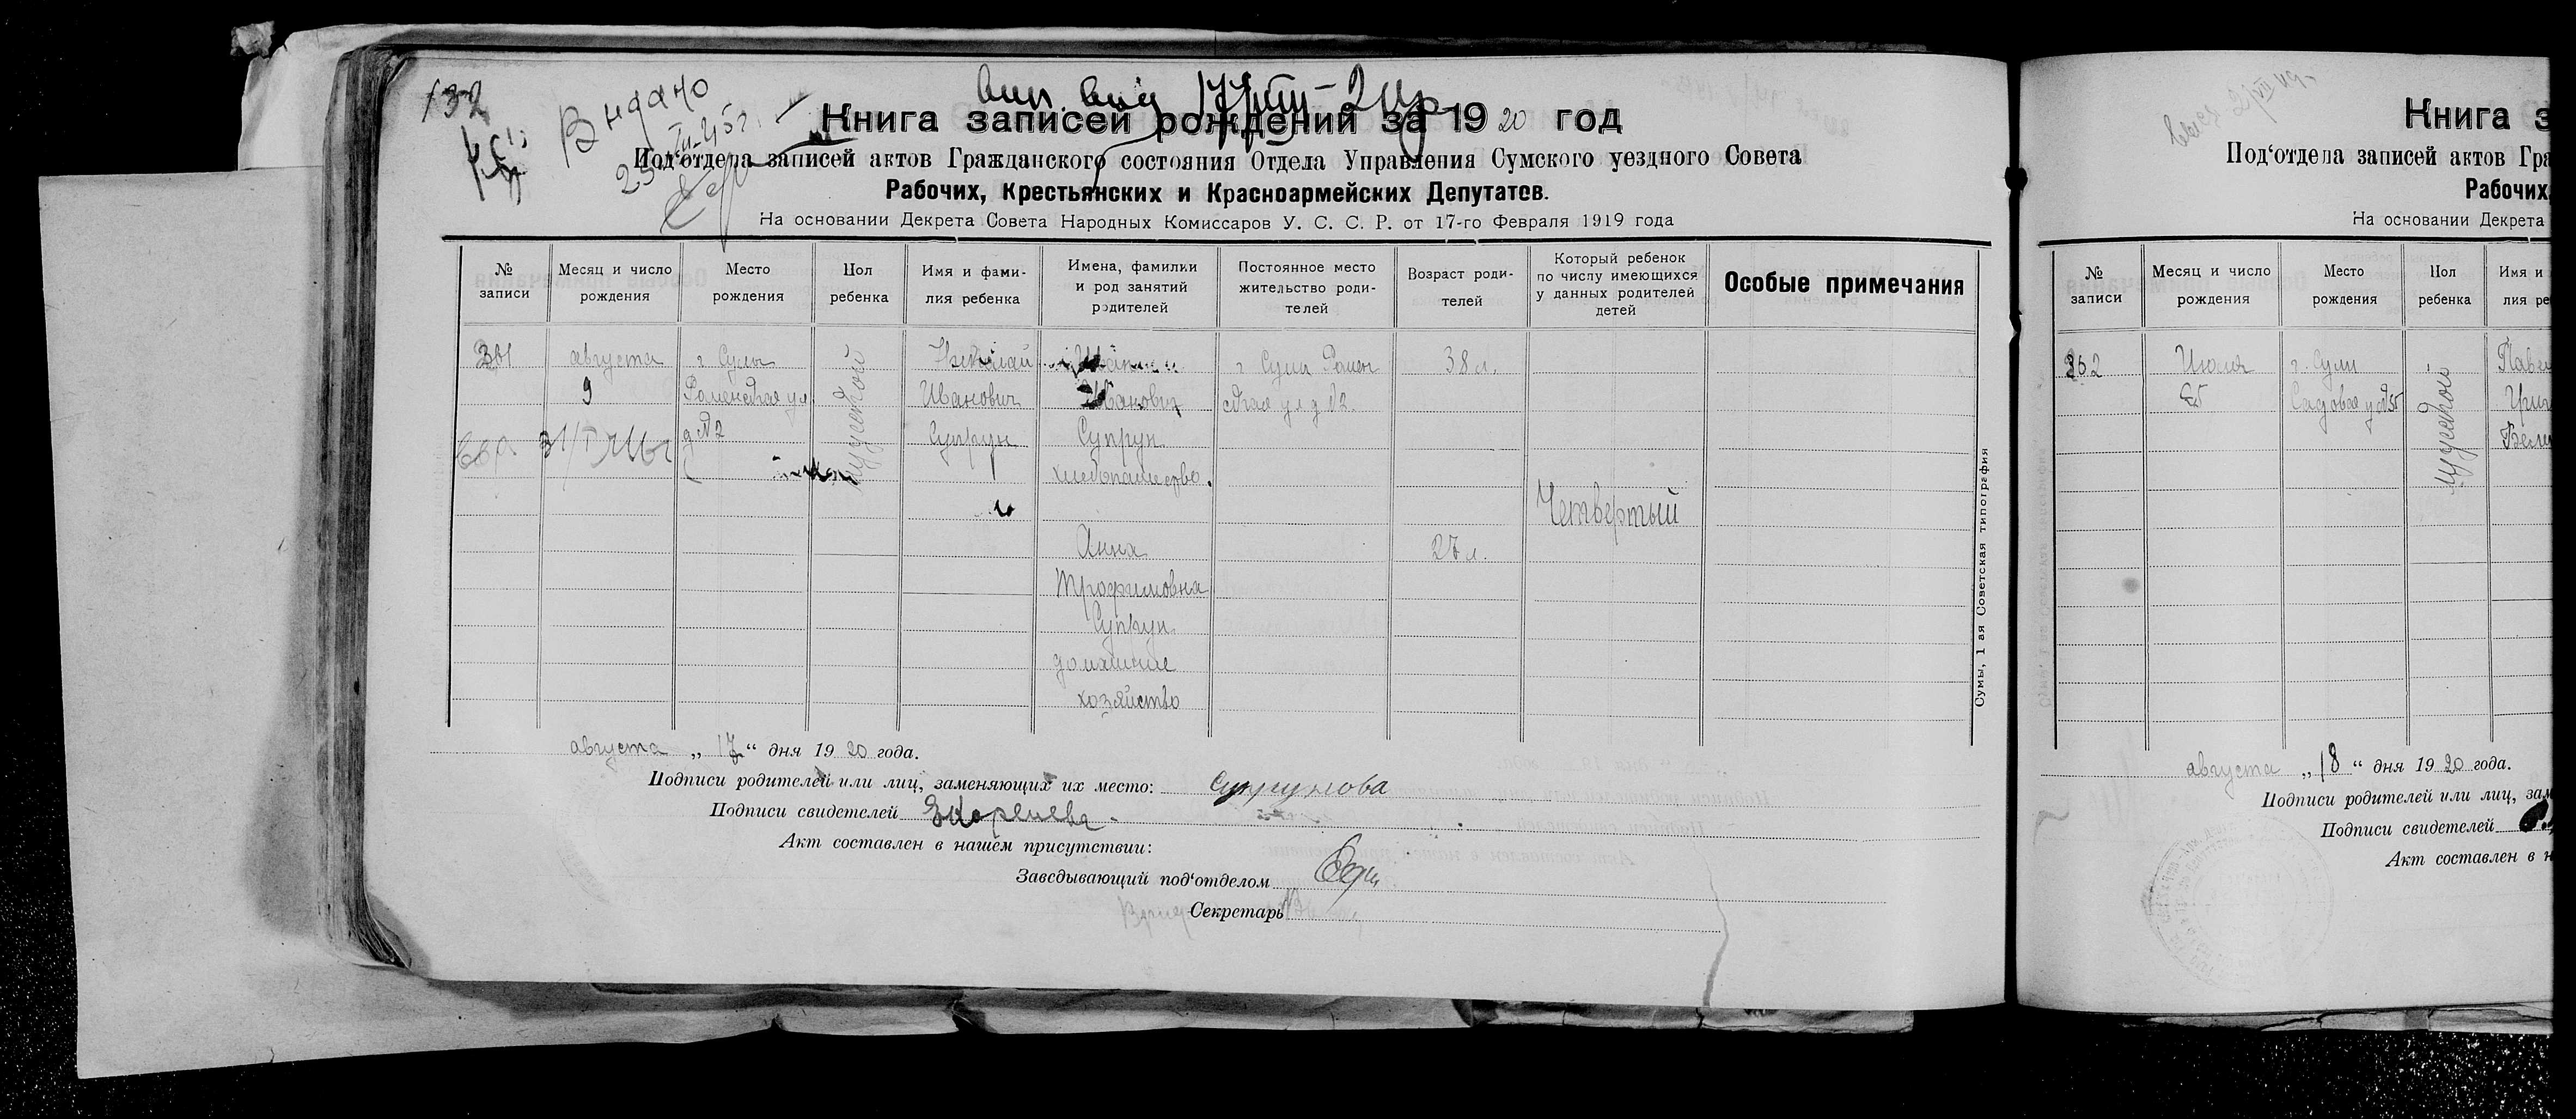 132
Видано
Книга записей рождений за 1920 год
Под‘отдела записей актов Гражданского состояния Отдела Управления Сумского уездного Совета
Рабочих, Крестьянских и Красноармейских Депутатов.
На основании Декрета Совета Народных Комиссаров У. С. С. Р. от 17-го Февраля 1919 года
№ записи
Месяц и число рождения
Место рождения
Пол ребенка
Имя и фамилия ребенка
Имена, фамилии и род занятий родителей
Постоянное место жительство родителей
Возраст родителей
Который ребенок по числу имеющихся у данных родителей детей
Особые примечания
августа
9
г Сумы
Роменская ул
д №2
мужской
Николай
Иванович
Супрун
Иванович
Супрун
хлебопашество.
г Сумы Ромен
ская ул д №2.
38 л.
Четвертый
Анна
27 л.
Трофимовна
Супрун
домашнее
хозяйство
Сумы, 1 ая Советская типография
августа „17“ дня 1920 года.
Подписи родителей или лиц, заменяющих их место: Супрунова
Подписи свидетелей
Акт составлен в нашем присутствии:
Заведывающий под‘отделом
Секретарь
Книга з
Под‘отдела записей актов Гра
Рабочих,
На основании Декрета
№ записи
Месяц и число рождения
Место рождения
Пол ребенка
Имя и
лия ре
362
Июля
г. Сумы
Садовая
мужской
августа „18“ дня 1920 года.
Подписи родителей или лиц, зам
Подписи свидетелей
Акт составлен в н